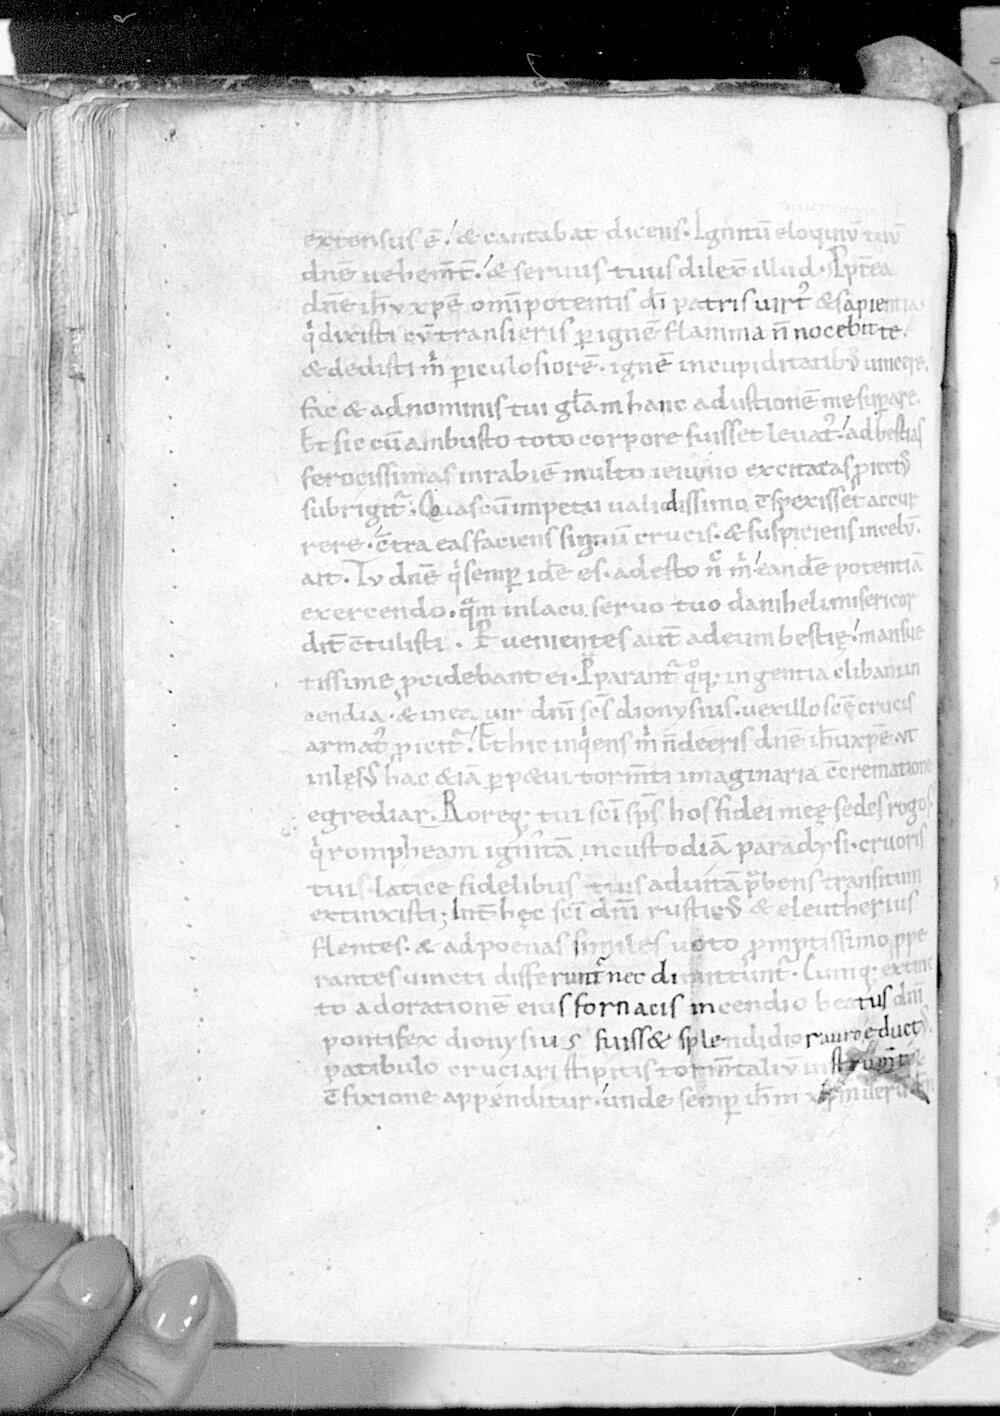 extensus ē. & cantabat dicens. Ignitū eloquiū tuū
dnē uehem̄t. & seruus tuus dilex̄ illud. Ppt̄ea
dnē ihū xpē omīpotentis dī patris uirt᷒ & sapientia.
q̇ dixisti cū transieris ꝑ ignē flamma n̄ nocebit te.
& dedisti m̄ ꝑiculosiorē. ignē in cupiditatibꝰ uincere.
fac & ad nominis tui gl̄am hanc adustionē me suꝑare.
Et sic cū ambusto toto corpore fuisset leuat᷒. ad bestias
ferocissimas in rabiē multo ieiunio excitatas ꝓiectꝰ
subrigit᷒. Quas cū impetu ualidissimo c̄spexisset accur
rere. c̄tra eas faciens signū crucis. & suspiciens in celū.
ait. Tu dnē q̇ semꝑ idē es. adesto nc̄ m̄ eandē potentiā
exercendo. quā in lacu seruo tuo daniheli misericor
dit̄ c̄tulisti. Puenientes aut̄ ad eum bestię. mansue
tissime ꝓcidebant ei. Pparant᷒ qoq. ingentia clibani in
cendia. & in ea uir dnī scs̄ dionysius. uexillo scę̄ crucis
armat᷒ ꝓicit᷒. Et hic inq̇ens m̄ n̄ deeris dnē ihū xpē ut
inlęsꝰ hac & iā ꝑpeui torm̄ti imaginaria c̄crematione
egrediar. Roreq. tui scī sps̄ hos fidei meę sedes rogos.
q̇ rompheam ignitā in custodiā paradysi. cruoris
tui latice fidelibus tuis ad uitā p̄bens transitum
extinxisti; Int̄ hęc scī dnī rusticꝰ & eleutherius
flentes. & ad poenas similes uoto ꝓmptissimo ꝓpe
rantes uincti differunt᷒ nec di
to ad orationē eius fornacis incendio beatus dnī
pontifex dionysius fuiss& splendidior auro eductꝰ.
patibulo cruciari stipitis tormtaliū
c̄fixione appenditur. unde semꝑ ihm xp̄m